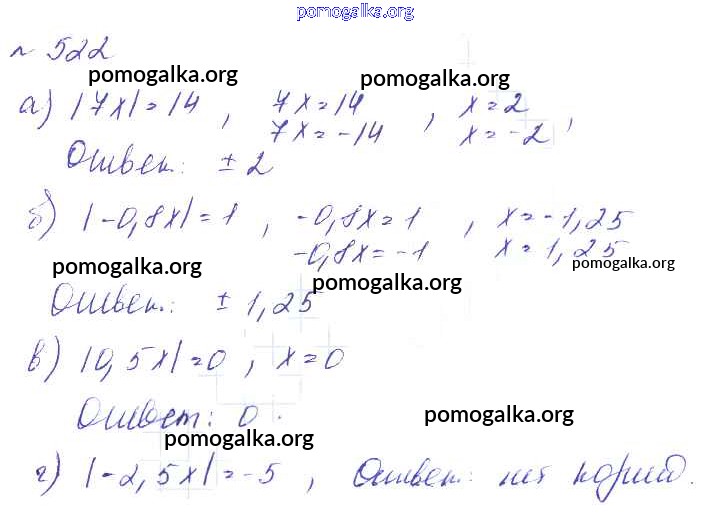 pomogalka.org
№ 522
pomogalka.org pomogalka.org
а) |7x|=14, 7x=14, x=2
7x=-14 x=-2,
Ответ: ±2
б) |-0,8x|=1, -0,8x=1, x=-1,25
-0,8x=-1 x=1,25
pomogalka.org pomogalka.org pomogalka.org
Ответ: ±1,25
в) |0,5x|=0, x=0
Ответ: 0.
pomogalka.org pomogalka.org
г) |-2,5x|=-5, Ответ: нет корней.